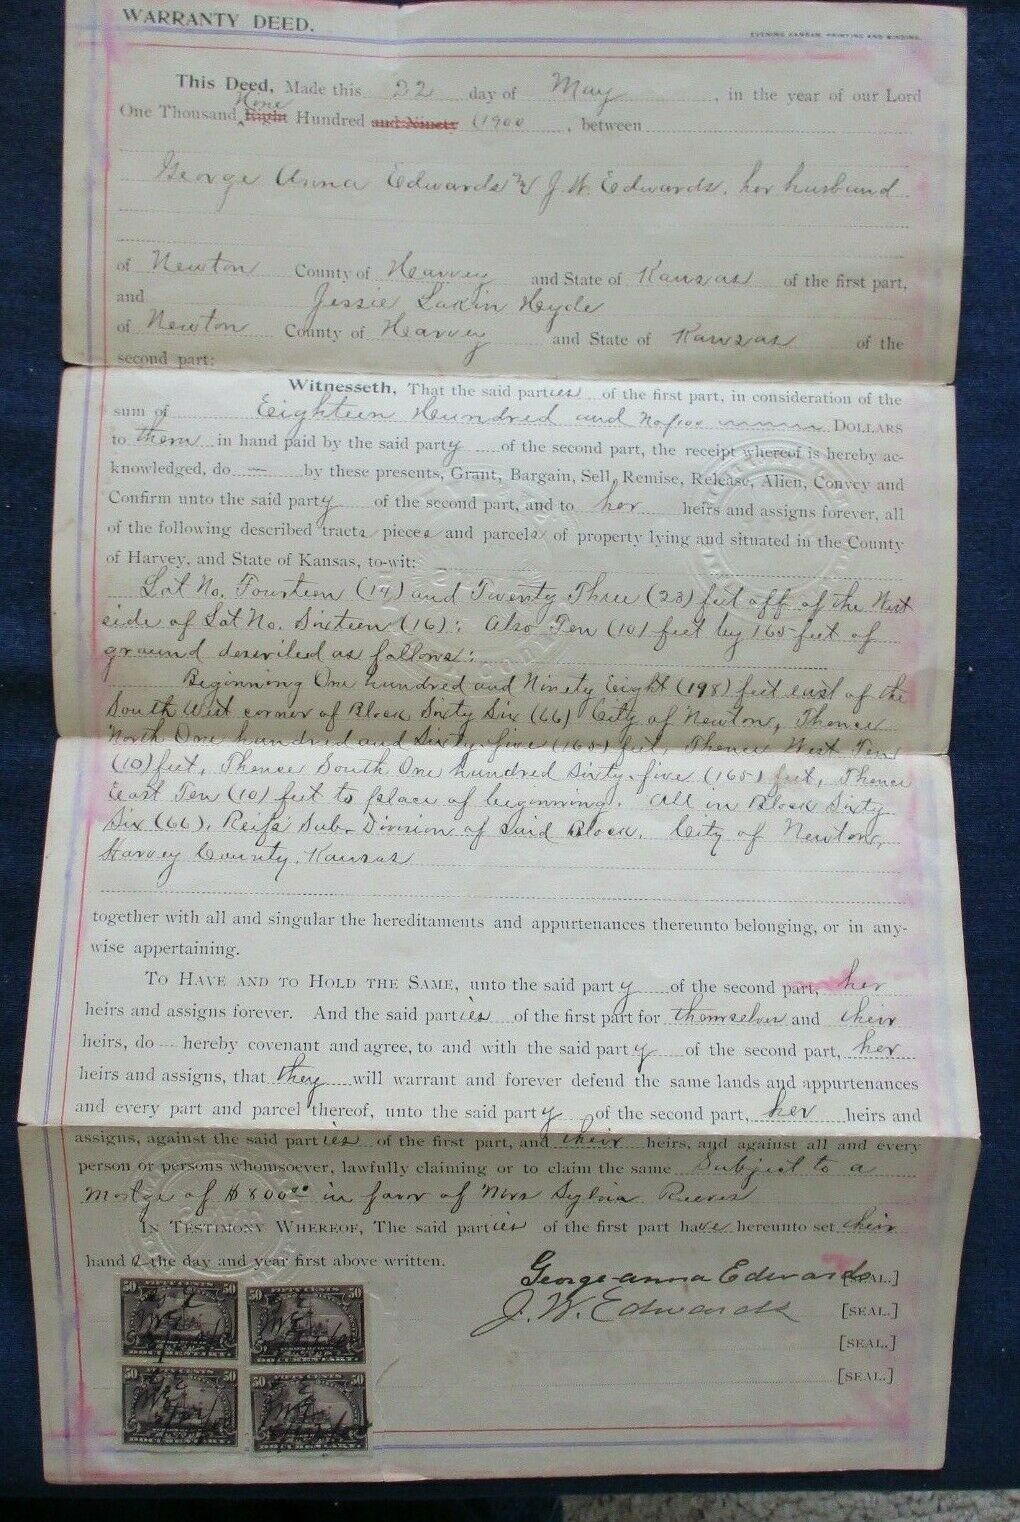 WARRANTY DEED.
EVENING KANSAN PRINTING AND BINDING.
This Deed, Made this 22 day of May, in the year of our Lord
Nine
One Thousand Eight Hundred and Ninety (1900, between
George Anna Edwards & J. W. Edwards, her husband
of Newton County of Harvey and State of Kansas of the first part,
and Jessie Lakin Hyde
of Newton County of Harvey and State of Kansas of the
second part:
Witnesseth, That the said parties of the first part, in consideration of the
sum of Eighteen Hundred and No/100 DOLLARS
to them in hand paid by the said party of the second part, the receipt whereof is hereby ac-
knowledged, do — by these presents, Grant, Bargain, Sell, Remise, Release, Alien, Convey and
Confirm unto the said party of the second part, and to her heirs and assigns forever, all
of the following described tracts pieces and parcels of property lying and situated in the County
of Harvey, and State of Kansas, to-wit:
Lot No. Fourteen (14) and Twenty Three (23) feet off of the West
side of Lot No. Sixteen (16); Also Ten (10) feet by 165 feet of
ground described as follows:
Beginning One hundred and Ninety Eight (198) feet east of the
South West corner of Block Sixty Six (66) City of Newton, Thence
North One hundred and Sixty-five (165) feet, Thence West Ten
(10) feet, Thence South One hundred Sixty-five (165) feet, Thence
East Ten (10) feet to place of beginning. All in Block Sixty
Six (66), Sub-Division of said Block, City of Newton,
Harvey County, Kansas
together with all and singular the hereditaments and appurtenances thereunto belonging, or in any-
wise appertaining.
TO HAVE AND TO HOLD THE SAME, unto the said party of the second part, her
heirs and assigns forever. And the said parties of the first part for themselves and their
heirs, do — hereby covenant and agree, to and with the said party of the second part, her
heirs and assigns, that they will warrant and forever defend the same lands and appurtenances
and every part and parcel thereof, unto the said party of the second part, her heirs and
assigns, against the said parties of the first part, and their heirs, and against all and every
person or persons whomsoever, lawfully claiming or to claim the same Subject to a
Mortge of $800.00 in favor of Mrs Sylvia Reeves
IN TESTIMONY WHEREOF, The said parties of the first part have hereunto set their
hands the day and year first above written.
George-anna Edwards [SEAL.]
J. W. Edwards [SEAL.]
[SEAL.]
[SEAL.]
50 FIFTY CENTS 50
DOCUMENTARY
50 FIFTY CENTS 50
DOCUMENTARY
50 FIFTY CENTS 50
DOCUMENTARY
50 FIFTY CENTS 50
DOCUMENTARY